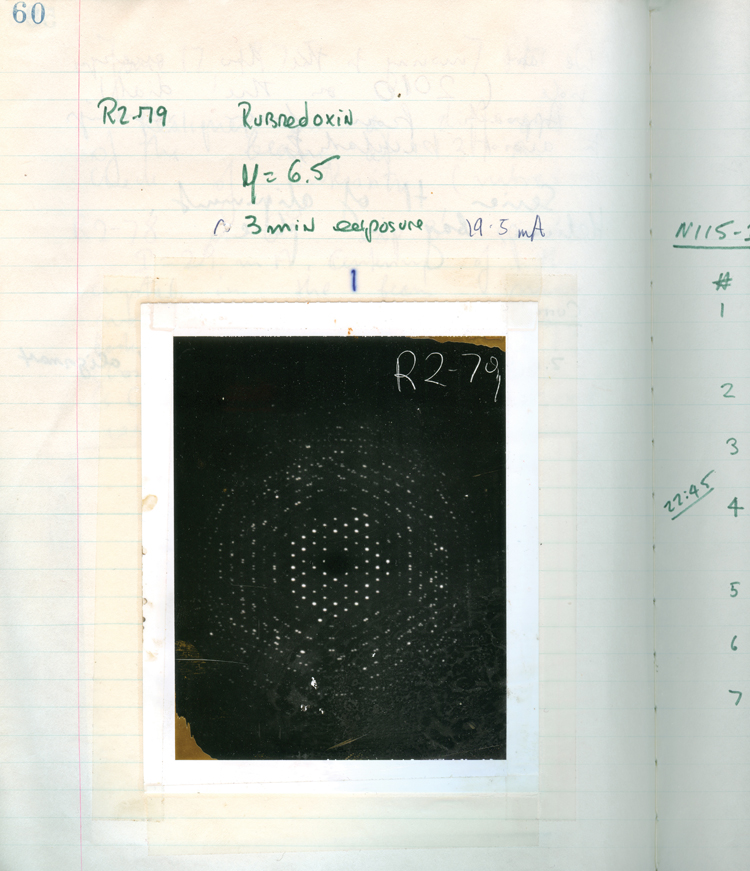 60
R2-79 Rubredoxin
μ = 6.5
~ 3 min exposure 19.5 mA
R2-79
N115-
#
1
2
3
22:45
4
5
6
7